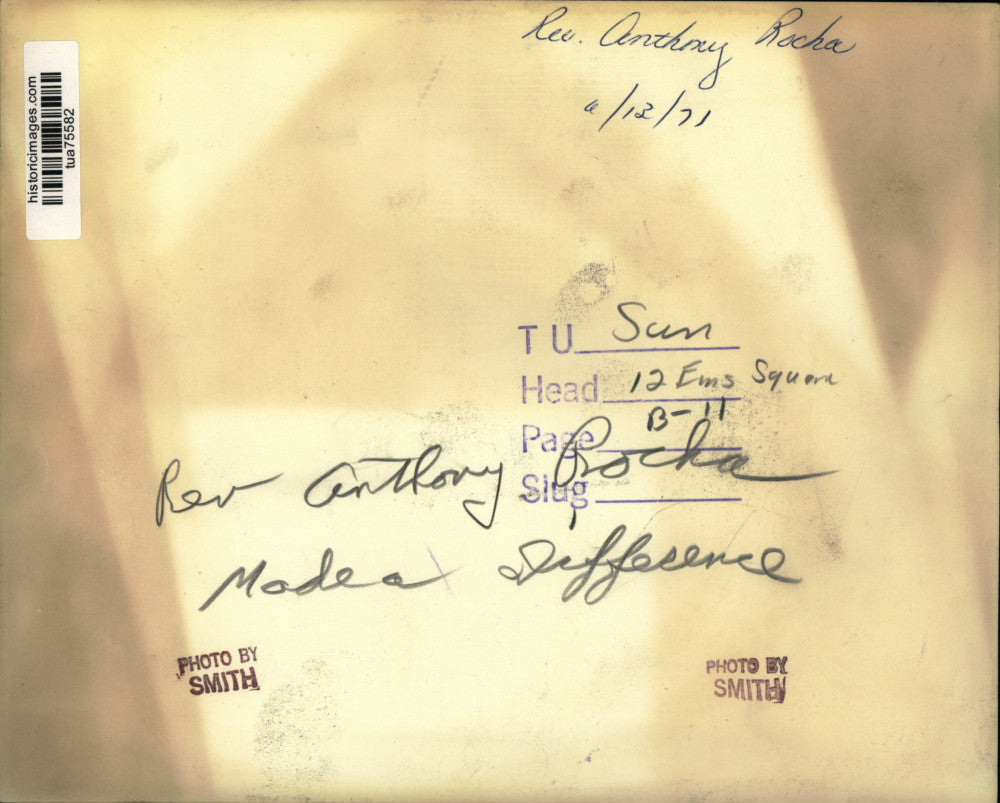 Rev. Anthony Rocha
6/13/71
historicimages.com
tua75582
T U Sun
Head 12 Ems Square
Page B-11
Slug
Rev Anthony Rocha
Made a Difference
PHOTO BY
SMITH
PHOTO BY
SMITH